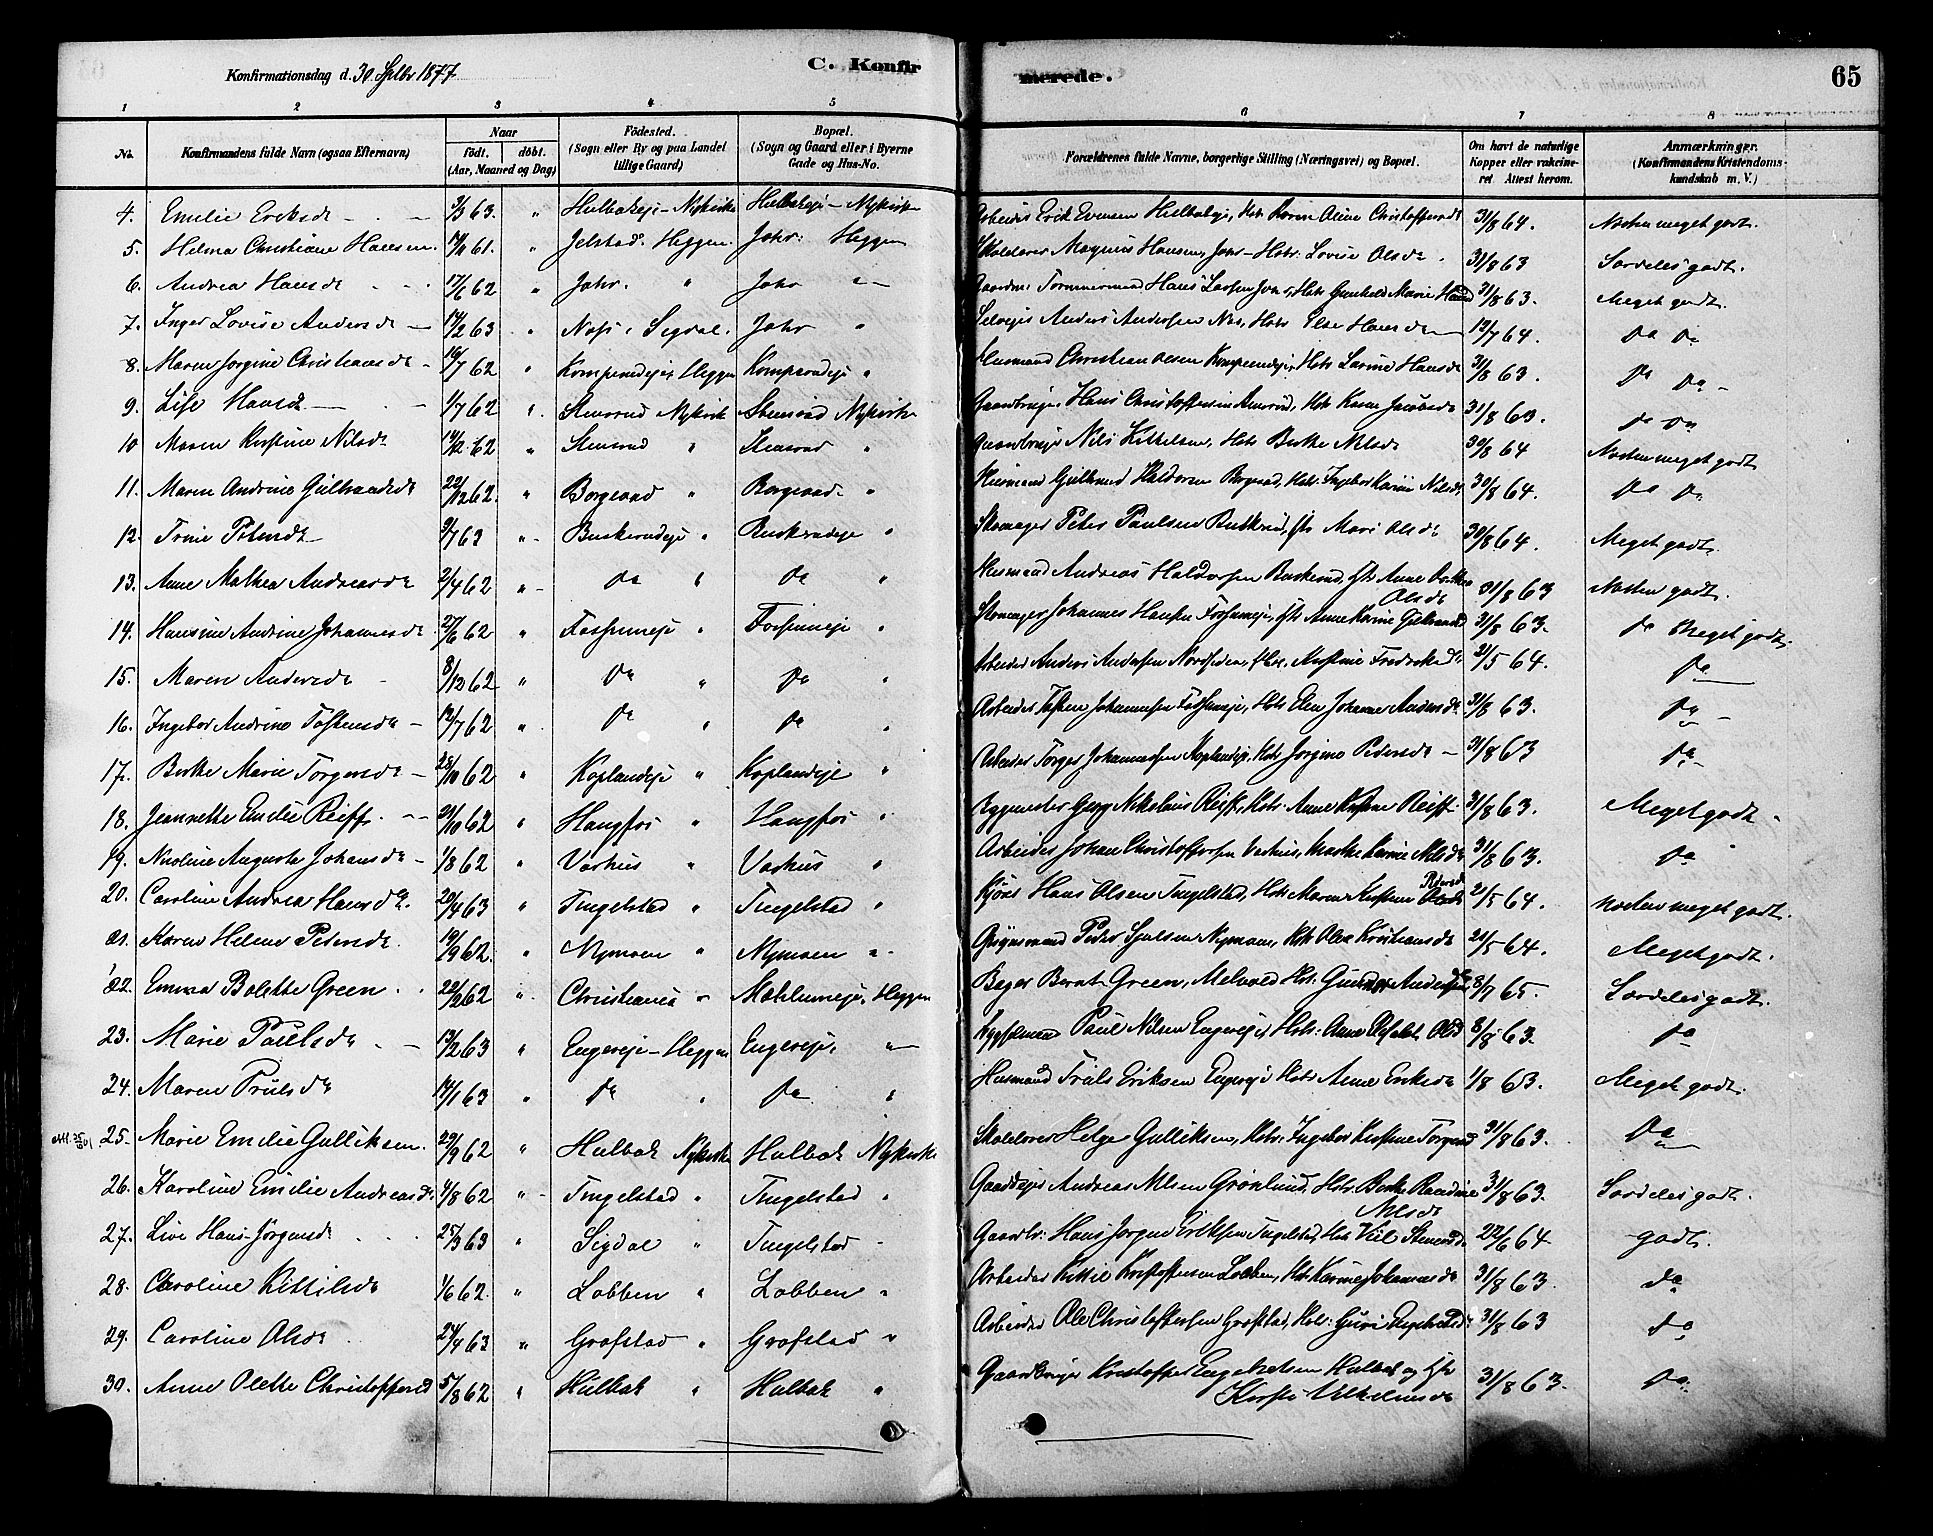 Konfirmationsdag d. 30 Septbr 1877. C. Konfirmerede. 65
1 2 3 4 5 6 7 8
No. Konfirmandens fulde Navn (ogsaa Efternavn) Naar födt. döbt. (Aar, Maaned og Dag) Födested. (Sogn eller By og paa Landet tillige Gaard) Bopæl. (Sogn og Gaard eller i Byerne Gade og Hus-No. Forældrenes fulde Navne, borgerlige Stilling (Næringsvei) og Bopæl. Om havt de naturlige Kopper eller vakcineret. Attest herom. Anmærkninger. (Konfirmandens Kristendomskundskab m. V.)
4. Emilie Eriksdr 9/3 63. " Hulbakeje - Nykirke Hulbakeje - Nykirke Arbeider Erik Evensen Hulbakeje, Hstr Karen Oline Christoffersdr 31/8 64. Næsten meget godt.
5. Helma Christiane Hansen 61. " Jelstad. Heggen Johr: Heggen Skolelærer Magnus Hansen, Johr - Hstr: Lovise Olsdr 31/8 63 Særdeles godt.
6. Andrea Hansdr 17/6 62 " Johr. " Johr " Tømmermand Hans Larsen Johr, Hstr Gunhild Marie 31/8 63. Meget godt.
7. Inger Lovise Andersdr 17/2 63 " Næss i Sigdal. Johr " Selveier Anders Andersen Næs, Hstr Else Hansdr 12/7 64. Do Do
8. Maren Jorgine Christiansdr 19/7 62 " Komperudeje Heggen Komperudeje " Husmand Christian Olsen Komperudeje, Hstr Larine Hansdr 31/8 63. Do Do
9. Lise Hansdr 1/7 62 " Stensrud Nykirke Stensrud Nykirke Gaardbruger Hans Christoffersen Stensrud, Hstr Karen Jacobsdr 31/8 63. Do Do
10 Maren Kirstine Nilsdr 14/12 62 " Stensrud " Stensrud " Gaardbruger Nils Kittelsen, Hstr Berthe Nilsdr 30/8 64 Næsten meget godt
11. Maren Andrine Gulbrandsdr 22/12 62. " Borgerud " Borgerud " Husmand Gulbrand Haldorsen Borgerud, Hstr Ingeborg Karine Nilsdr 30/8 64. Do Do
12. Trine Petersdr 9/7 63 " Buskerudeje " Buskerudeje " Skomager Peter Paulsen Buskerud, Hstr Mari Olsdr 30/8 64. Meget godt.
13. Anne Mathea Andreasdr 2/4 62 " Do " Do " Husmand Andreas Haldorsen Buskerud, Hstr Anne Olsdr 31/8 63 Næsten godt.
14. Hansine Andrine Johannesdr 27/6 62 " Fossumeje " Fossumeje " Skomager Johannes Hansen Fossumeje, Hstr Anne Karine Gulbrandsd 31/8 63. Do Meget godt.
15. Maren Andersdr 8/12 62 " Do " Do " Arbeider Anders Andersen Nordseden, Hstr. Kirstine Fredriksdr 21/5 64. Do
16. Ingebor Andrine Tostensdr 12/7 62 " Do " Do " Arbeider Tosten Johannesen Fossumeje, Hstr Elen Johanne Andersdr 31/8 63. Do
17. Berthe Marie Torgersdr 28/10 62 " Koplandeje " Koplandeje " Arbeider Torger Johannesen Koplandeje, Hstr Jorgine Pedersdr 31/8 63 Do
18. Jeannette Emilie Reiff 31/10 62 " Haugfos " Haugfos " Bygmester Georg Nikolaus Reiff, Hstr Anne Kirstine Reiff 31/8 63. Meget godt
19. Nicoline Auguste Johansdr 1/8 62 " Vashus " Vashus " Arbeider Johan Christoffersen Vashus, Marthe Karine Nilsdr 31/8 63. Do
20. Caroline Andrea Hansdr. 20/4 63 " Tingelstad " Tingelstad " Hans Olsen Tingelstad, Hstr Maren Kirstine Pedersd 21/5 64. Næsten meget godt.
21. Karen Helene Pedersdr. 19/9 62. " Nymoen " Nymoen " Peder Nymoen, Hstr Olea Kristiansdr 21/5 64. Meget godt.
22. Emma Bolette Green 62 " Christiania " Møhlumeje, Heggen Bager Bernt Green, Melvold Hstr. Andersdr 8/7 65. Særdeles godt.
23. Marie Paulsdr 13/2 63 " Engereje - Heggen Engereje " Paul Nilsen Engereje, Hstr. Anne Olsd 8/8 63. Do
24. Maren Trulsdr 14/1 63 " Do " Do " Husmand Truls Eriksen Engereje Hstr Anne Eriksdr 1/8 63. Meget godt.
25. Marie Emilie Gulliksen. 29/9 62 " Hulbak Nykirke Hulbak Nykirke Skolelærer Helge Gulliksen, Hstr. Ingebor Kirstine Torgersd 31/8 63. Do
26. Karoline Emilie Andreasdr 4/8 62 " Tingelstad " Tingelstad " Gaardbruger Andreas Nilsen Grønlund, Hstr Berthe Randine Nilsdr 31/8 63. Særdeles godt.
27. Live Hans-Jörgensdr 25/3 63 " Sigdal " Tingelstad Gaardbr: Hans Jorgen Eriksen Tingelstad, Hstr 22/6 64 godt.
28. Caroline Kittilsdr 1/6 62. " Lobben " Lobben " Arbeider Kittil Kristoffersen Lobben, Hstr Karine Johannesdr 31/8 63. Do
29. Caroline Olsdr 24/4 63 " Grofstad " Grofstad " Arbeider Ole Christoffersen Grofstad, Hstr: Guri 31/8 63 Do
30. Anne Olette Christoffersd 5/8 62 " Hulbak " Hulbak " Gaardbruger Kristoffer Engebretsen Hulbak og Hstr Kirsti Vilhelmsdr 31/8 63. Do